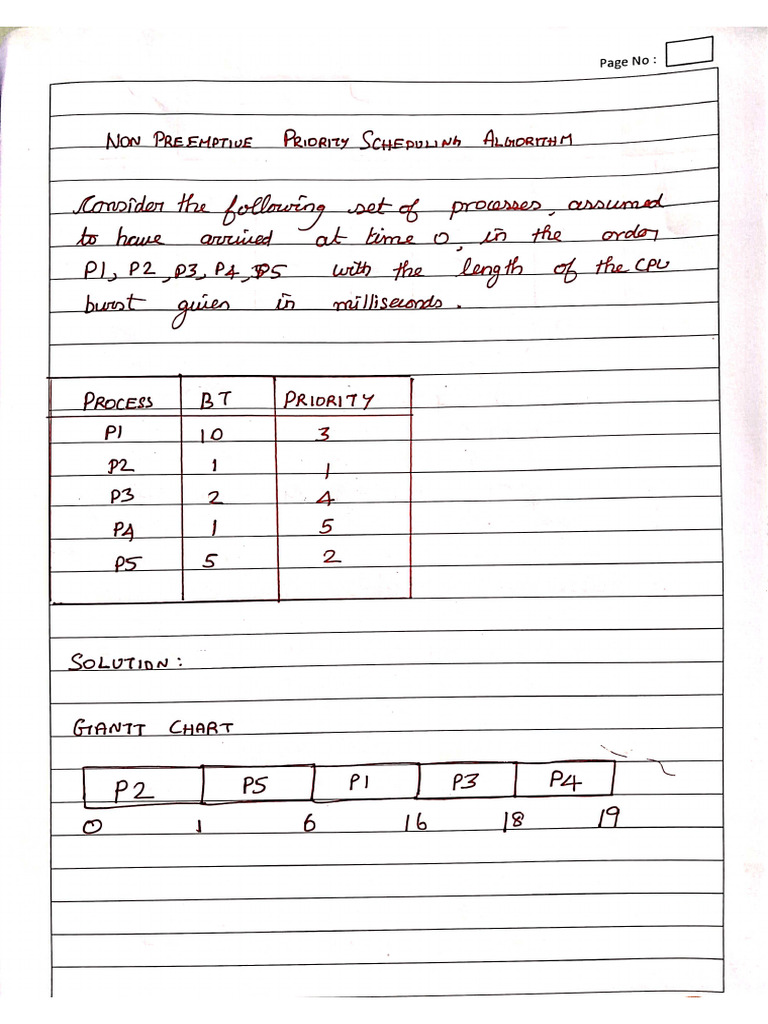 Page No :
NON PREEMPTIVE PRIORITY SCHEDULING ALGORITHM
Consider the following set of processes, assumed
to have arrived at time 0, in the order
P1, P2, P3, P4, P5 with the length of the CPU
burst given in milliseconds.
PROCESS BT PRIORITY
P1 10 3
P2 1 1
P3 2 4
P4 1 5
P5 5 2
SOLUTION:
GANTT CHART
P2 P5 P1 P3 P4
0 1 6 16 18 19